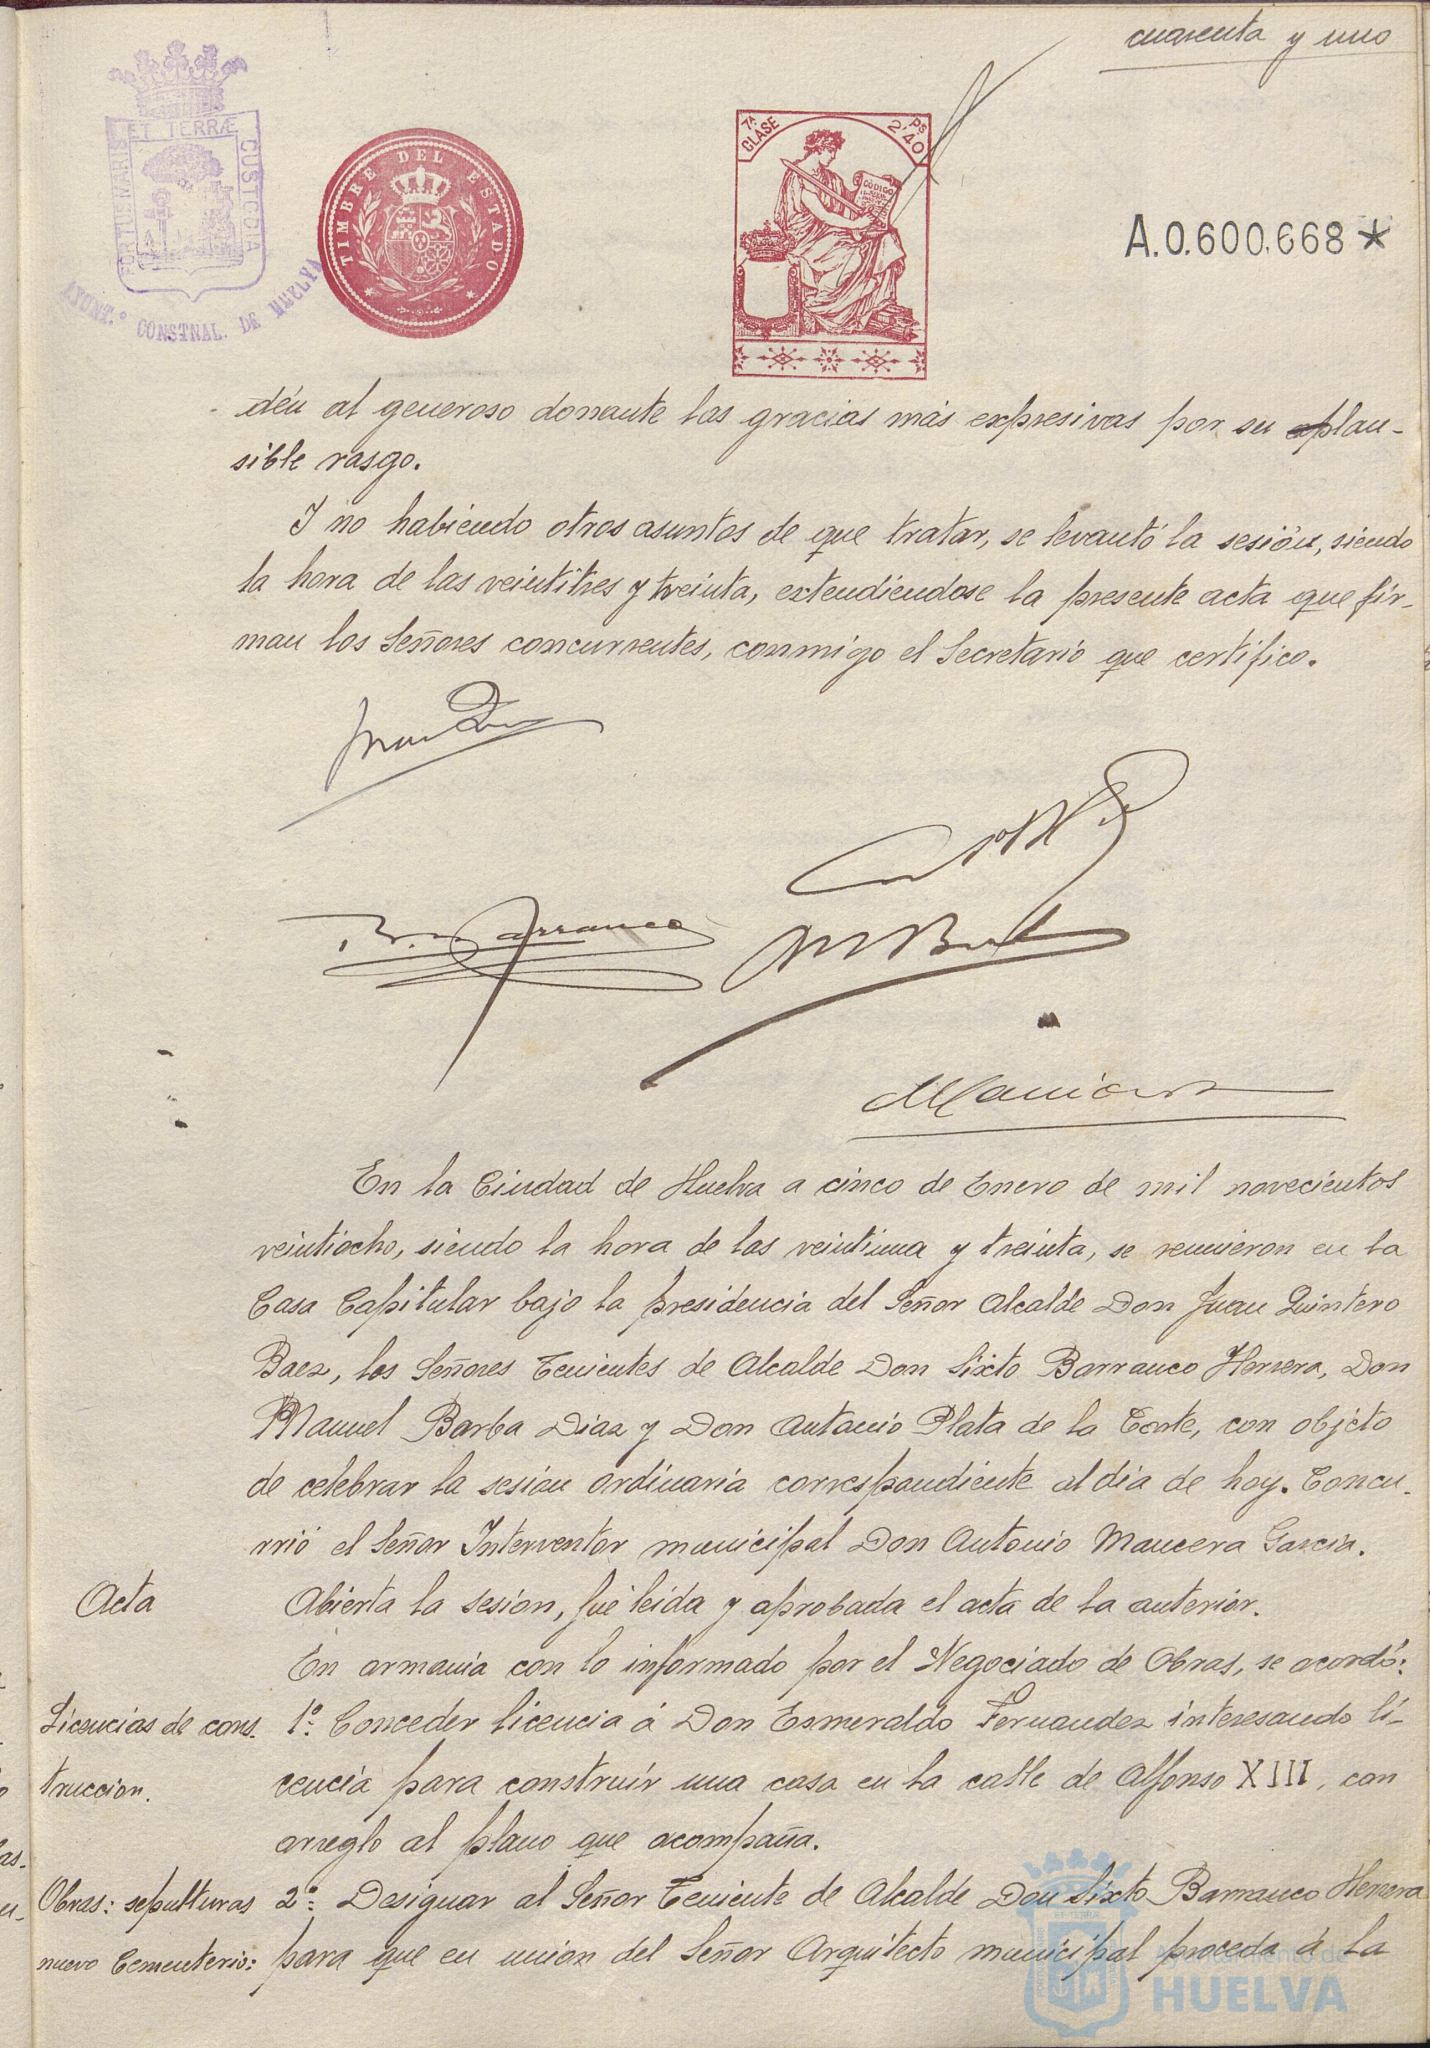 cuarenta y uno
PORTUS MARIS ET TERRÆ CUSTODIA
AYUNT.º CONSTNAL. DE HUELVA
TIMBRE DEL ESTADO
7ª CLASE
2'40 Ps
CÓDIGO
A.0.600.668*
déu al generoso donante las gracias más expresivas por su plau-
sible rasgo.
Y no habiendo otros asuntos de que tratar, se levantó la sesión, siendo
la hora de las veintitres y treinta, extendiendose la presente acta que fir-
man los Señores concurrentes, conmigo el Secretario que certifico.
Barranco
En la Ciudad de Huelva a cinco de Enero de mil novecientos
veintiocho, siendo la hora de las veintiuna y treinta, se reunieron en la
Casa Capitular bajo la presidencia del Señor Alcalde Don Juan Quintero
Baez, los Señores Tenientes de Alcalde Don Sixto Barranco Herrera, Don
Manuel Barba Diaz y Don Antonio Plata de la Corte, con objeto
de celebrar la sesion ordinaria correspondiente al dia de hoy. Concu-
rrió el Señor Interventor municipal Don Antonio Mancera Garcia.
Acta
Abierta la sesion, fué leida y aprobada el acta de la anterior.
En armonia con lo informado por el Negociado de Obras, se acordó:
Licencias de cons-
1º: Conceder licencia á Don Esmeraldo Fernandez interesando li-
truccion.
cencia para construir una casa en la calle de Alfonso XIII, con
arreglo al plano que acompaña.
Obras: sepulturas
2º: Designar al Señor Teniente de Alcalde Don Sixto Barranco Herrera
nuevo Cementerio:
para que en union del Señor Arquitecto municipal proceda á la
Ayuntamiento de
HUELVA